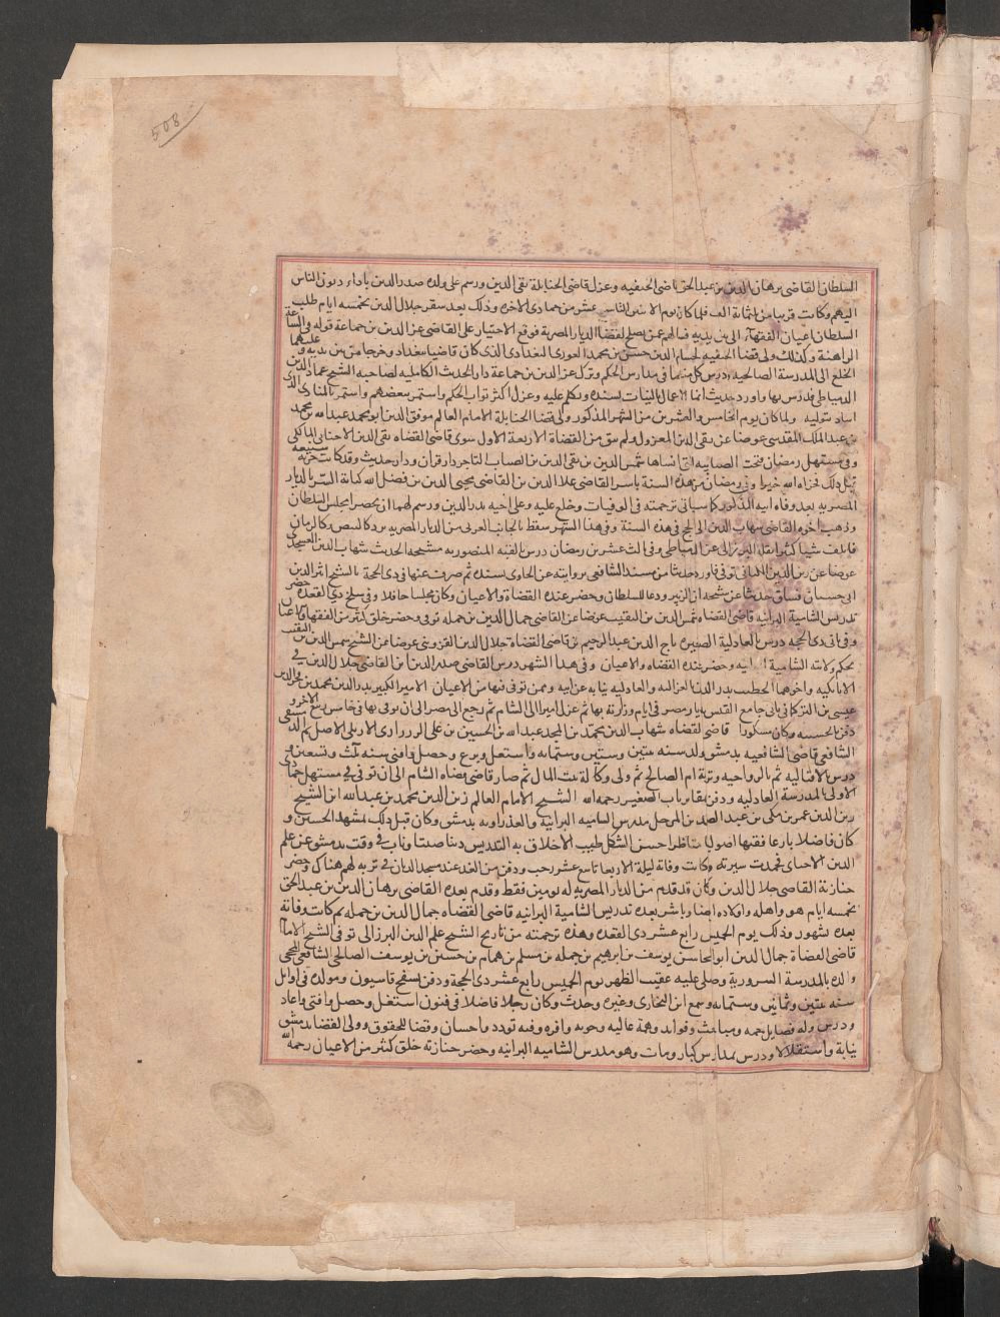 508
السلطان القاضى برهان الدين بن عبد الحق قاضى الحنفيه وعزل قاضى الحنابلة تقى الدين ورسم على ولده صدر الدين باداء ديون الناس
اليهم وكانت قريبا من ثلثمائة الف فلما كان يوم الاثنين التاسع عشر من جمادى الاخرة وذلك بعد سفر جلال الدين بخمسه ايام طلب
السلطان اعيان الفقهاء الى بين يديه فسالهم عن من يصلح لقضا الديار المصرية فوقع الاختيار على القاضى عز الدين بن جماعة فولاه فى الساعة
الراهنة وكذلك ولى قضا الحنفيه لحسام الدين حسن بن محمد الغورى البغدادى الذى كان قاضيا ببغداد وخرجا من بين يديه وعليهما
الخلع الى المدرسة الصالحيه ودرس كل منهما فى مدارس الحكم وترك عز الدين بن جماعة دار الحديث الكامليه لصاحبه الشيخ عماد الدين
الدمياطى فدرس بها واورد حديث انما الاعمال بالنيات بسنده وتكلم عليه وعزل اكثر نواب الحكم واستمر بعضهم واستمر بالمنادى الذى
اشار بتوليته ولما كان يوم الخامس والعشرين من الشهر المذكور ولى قضا الحنابلة الامام العالم موفق الدين ابو محمد عبد الله بن محمد
بن عبد الملك المقدسى عوضا عن تقى الدين المعزول ولم يبق من القضاة الاربعة الاول سوى قاضى القضاه تقى الدين الاخنايى المالكى
وفى مستهل رمضان فتحت الصبابيه التى انشاها شمس الدين بن تقى الدين بن الصباب التاجر دار قران ودار حديث وقد كانت خربه شنيعه
قبل ذلك فجزاه الله خيرا وفى رمضان من هذه السنة باشر القاضى علا الدين بن القاضى محيى الدين بن فضل الله كتابة السر بالديار
المصريه بعد وفاة ابيه المذكور كما سياتى ترجمته فى الوفيات وخلع عليه وعلى اخيه بدر الدين ورسم لهما ان يحضرا مجلس السلطان
وذهب اخوه القاضى شهاب الدين الى الحج فى هذه السنة وفى هذا الشهر سقط بالجانب الغربى من الديار المصريه برد كالبيض وكالرمان
فاتلف شيا كثيرا نقله البرزالى عن الدمياطى وفى الثالث عشر من رمضان درس القبه المنصوريه مشيخه الحديث شهاب الدين العسجدى
عوضا عن زين الدين الكتنانى توفى فاورد حديثا من مسند الشافعى بروايته عن الجاولى بسنده ثم صرف عنها فى ذى الحجة بالشيخ اثير الدين
ابى حسيان فساق حديثا عن شيخه ابن الزبير ودعا للسلطان وحضر عنده القضاة والاعيان وكان مجلسا حافلا وفى سلخ ذى القعده حضر
تدريس الشامية البرانيه قاضى القضاه شمس الدين بن النقيب عوضا عن القاضى جمال الدين بن جمله توفى وحضر خلق كثير من الفقها والاعيان
وفى ثانى ذى الحجه درس بالعادلية الصغيره تاج الدين عبد الرحيم بن قاضى القضاة جلال الدين القزوينى عوضا عن الشيخ شمس الدين بن النقيب
بحكم ولايته الشامية البرانيه وحضر عنده القضاه والاعيان وفى هذا الشهر درس القاضى صدر الدين بن القاضى جلال الدين فى
الاتابكيه واخوهما الخطيب بدر الدين الغزاليه والعادليه نيابه عن ابيه وممن توفى فيها من الاعيان الامير الكبير بدر الدين محمد بن فخر الدين
عيسى بن التركمانى بانى جامع المقس بديار مصر فى ايام وزارته بها ثم عزل اميرا الى الشام ثم رجع الى مصر الى ان توفى بها فى خامس ربيع الاخر و
دفن بالحسينيه وكان مشكورا قاضى القضاه شهاب الدين محمد بن المجد عبد الله بن الحسين بن على الزرزارى الاربلى الاصل ثم الدمشقى
الشافعى قاضى الشافعيه بدمشق ولد سنه ثنتين وستين وستمايه واشتغل وبرع وحصل وافتى سنه ثلث وتسعين و
درس بالاقباليه ثم بالرواحيه وتربة ام الصالح ثم ولى وكالة بيت المال ثم صار قاضى قضاه الشام الى ان توفى فى مستهل جمادى
الاولى بالمدرسة العادليه ودفن بمقابر باب الصغير رحمه الله الشيخ الامام العالم زين الدين محمد بن عبد الله ابن الشيخ
زين الدين عمر بن مكى بن عبد الصمد بن المرحل مدرس الشاميه البرانيه والعذراويه بدمشق وكان قبل ذلك بمشهد الحسين و
كان فاضلا بارعا فقيها اصوليا مناظرا حسن الشكل طيب الاخلاق به التدريس دينا صينا وناب فى وقت بدمشق عن علم
الدين الاخناى فحمدت سيرته وكانت وفاته ليلة الاربعا تاسع عشر رجب ودفن من الغد عند مسجد الدبان فى تربه لهم هناك وحضر
جنازته القاضى جلال الدين وكان قد قدم من الديار المصريه له يومين فقط وقدم بعده القاضى برهان الدين بن عبد الحق
بخمسه ايام هو واهله واولاده ايضا وباشر بعده تدريس الشامية البرانيه قاضى القضاه جمال الدين بن جمله ثم كانت وفاته
بعده بشهور وذلك يوم الخميس رابع عشر ذى القعده وهذه ترجمته من تاريخ الشيخ علم الدين البرزالى توفى الشيخ الامام
قاضى القضاة جمال الدين ابو المحاسن يوسف بن ابرهيم بن جمله بن مسلم بن همام بن حسين بن يوسف الصالحى الشافعى المحجى
والده بالمدرسة المسرورية وصلى عليه عقيب الظهر يوم الخميس رابع عشر ذى الحجة ودفن بسفح قاسيون ومولده فى اوايل
سنه ثنتين وثمانين وستمايه وسمع ابن البخارى وغيره وحدث وكان رجلا فاضلا فى فنون اشتغل وحصل وافتى واعاد
ودرس وله فضايل جمه ومباحث وفوايد وهمة عاليه وحرمه وافره وفيه تودد واحسان وقضا للحقوق وولى القضا بدمشق
نيابة واستقلالا ودرس بمدارس كبار ومات وهو مدرس الشاميه البرانيه وحضر جنازته خلق كثير من الاعيان رحمه الله